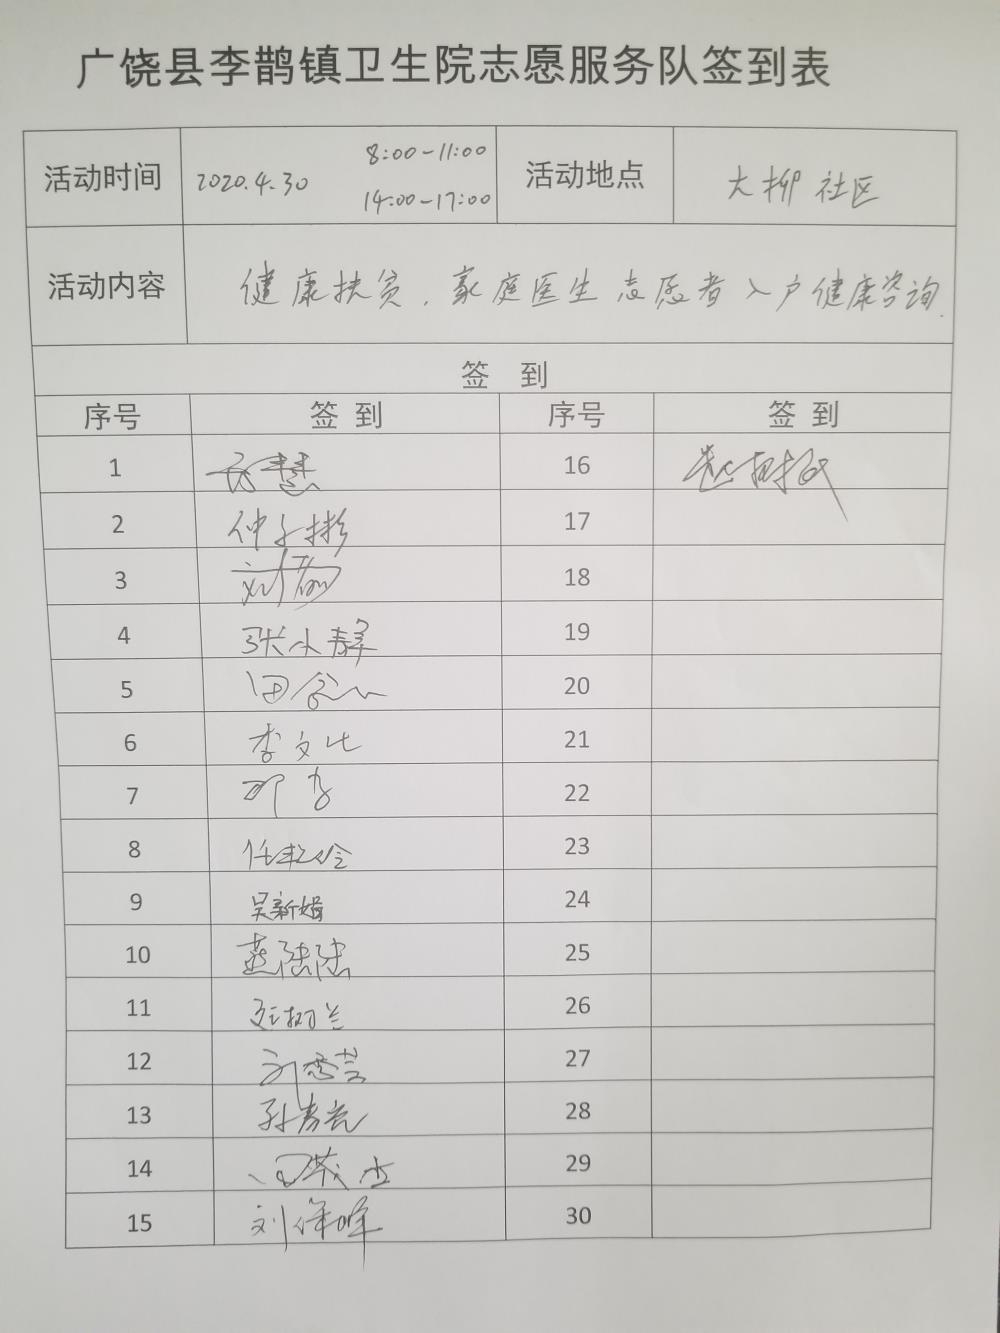 广饶县李鹊镇卫生院志愿服务队签到表
活动时间 2020.4.30 8:00-11:00 14:00-17:00 活动地点 大柳社区
活动内容 健康扶贫，家庭医生志愿者入户健康咨询.
签 到
序号 签到 序号 签到
1 16
2 仲子彬 17
3 刘 18
4 张小静 19
5 田 20
6 李文 21
7 22
8 任 23
9 吴新娟 24
10 燕陆陆 25
11 26
12 刘秀芸 27
13 孙秀亮 28
14 29
15 刘 峰 30